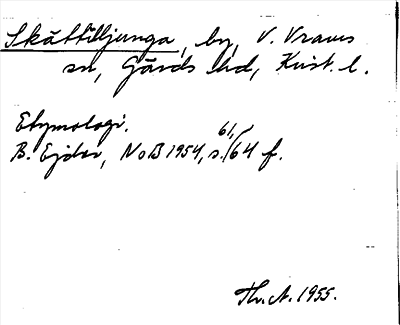 Skättilljunga, by, V. Vrams
sn, Gärds hd, Krist. l.
Etymologi.
B. Ejder, NoB 1954, s. 61, 64 f.
Th. A. 1955.